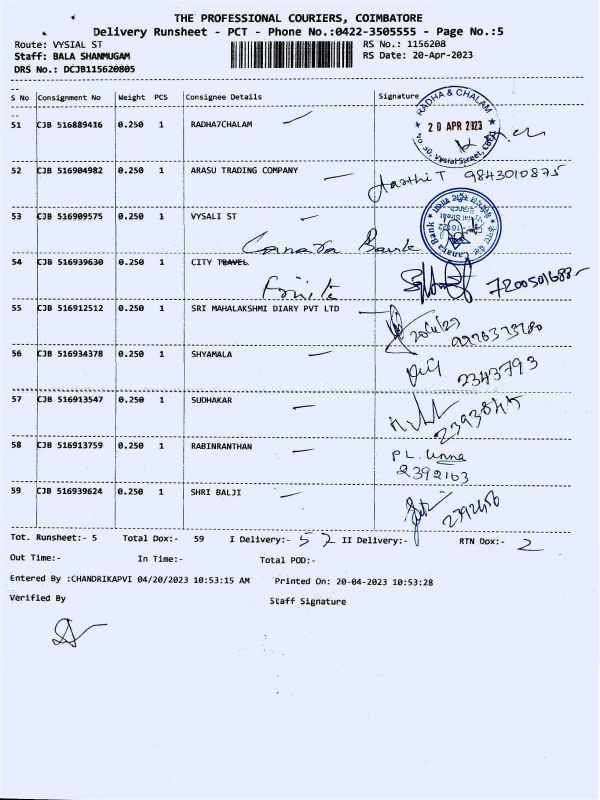 THE PROFESSIONAL COURIERS, COIMBATORE
Delivery Runsheet - PCT - Phone No.:0422-3505555 - Page No.:5
Route: VYSIAL ST
RS No.: 1156208
Staff: BALA SHANMUGAM
RS Date: 20-Apr-2023
DRS No.: DCJB115620805
S No Consignment No Weight PCS Consignee Details Signature
RADHA & CHALAM
20 APR 2023
No. 30, Vysial Street, CBE
51 CJB 516889416 0.250 1 RADHA7CHALAM
52 CJB 516904982 0.250 1 ARASU TRADING COMPANY
Aarthi T 9843010875
53 CJB 516909575 0.250 1 VYSALI ST
Canara Bank
Canara Bank
54 CJB 516939630 0.250 1 CITY TRAVEL
55 CJB 516912512 0.250 1 SRI MAHALAKSHMI DIARY PVT LTD
56 CJB 516934378 0.250 1 SHYAMALA
2343793
57 CJB 516913547 0.250 1 SUDHAKAR
58 CJB 516913759 0.250 1 RABINRANTHAN
P L.
2392103
59 CJB 516939624 0.250 1 SHRI BALJI
Tot. Runsheet:- 5 Total Dox:- 59 I Delivery:- 57 II Delivery:- RTN Dox:- 2
Out Time:- In Time:- Total POD:-
Entered By :CHANDRIKAPVI 04/20/2023 10:53:15 AM Printed On: 20-04-2023 10:53:28
Verified By Staff Signature